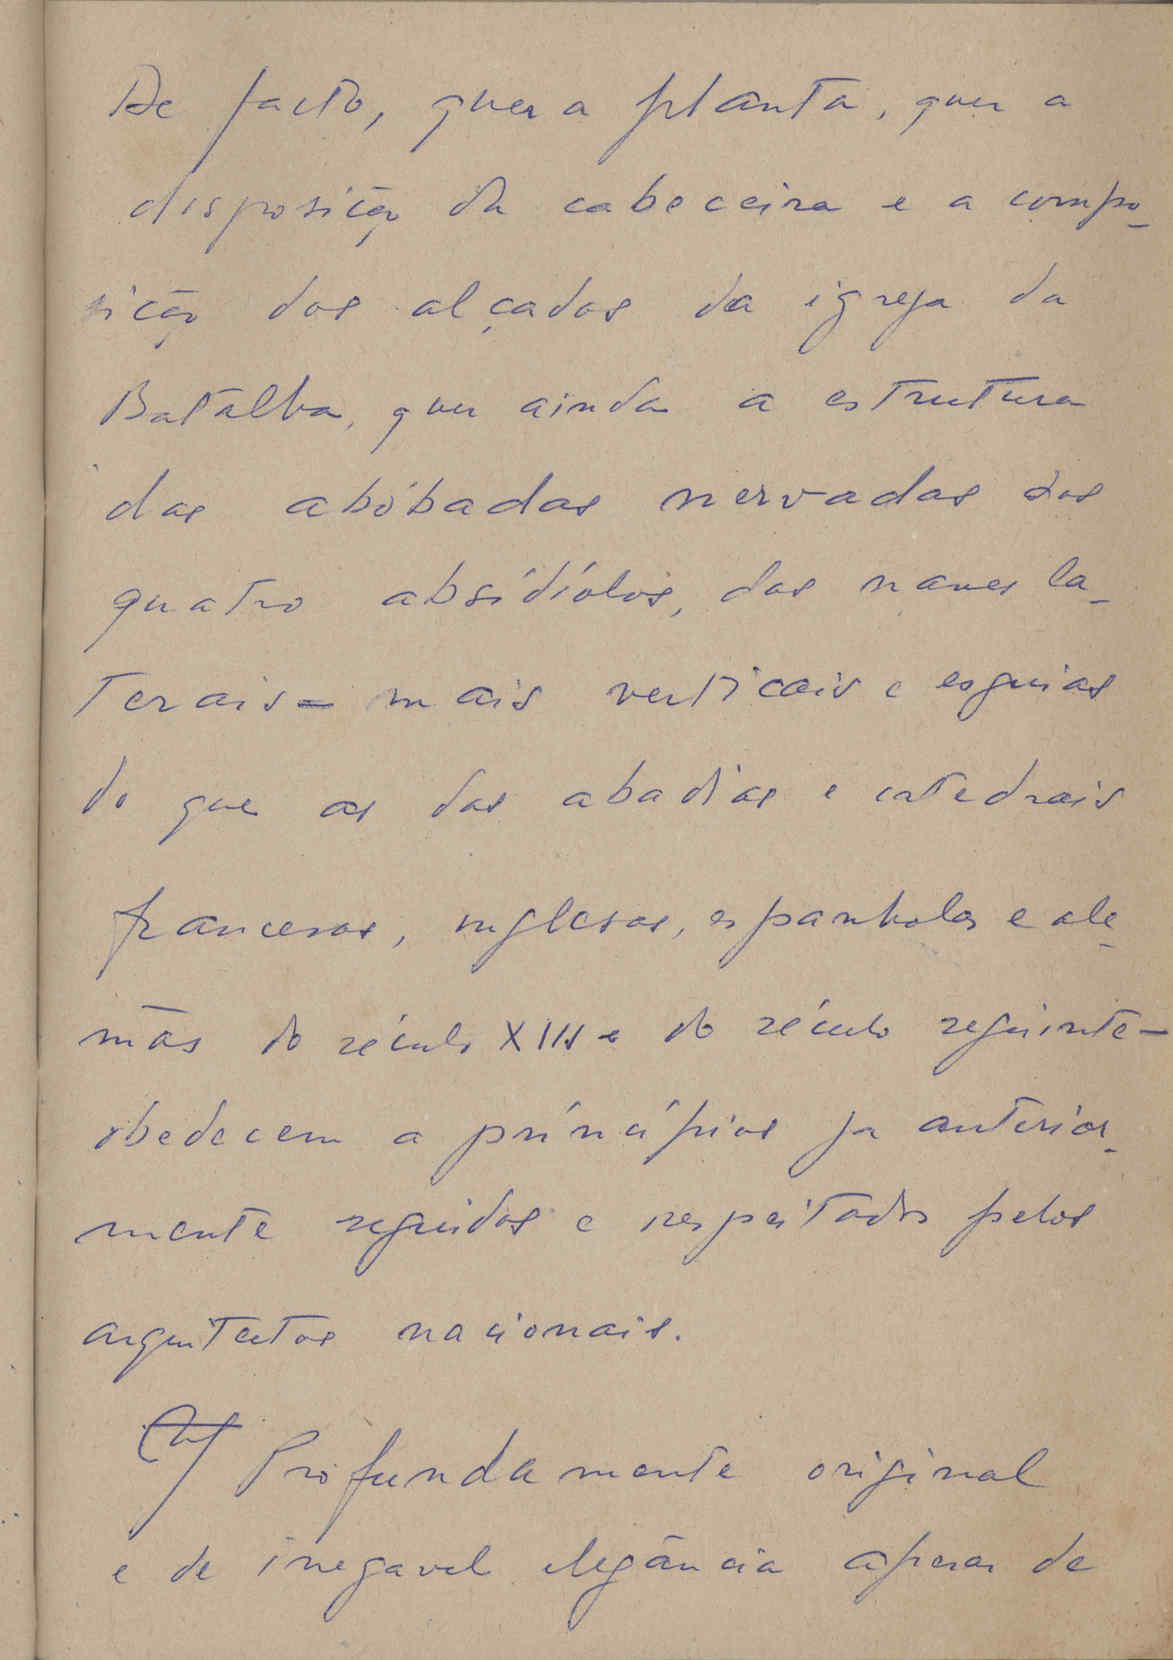 De facto, quer a planta, quer a
disposição da cabeceira e a compo-
sição dos alçados da igreja da
Batalha, quer ainda a estrutura
das abóbadas nervadas dos
quatro absídíolos, das naves la-
terais - mais verticais e esguias
do que as das abadias e catedrais
francesas, inglesas, espanholas e ale-
mãs do século XIII e do século seguinte -
obedecem a princípios ja anterior-
mente seguidos e respeitados pelos
arquitectos nacionais.
Profundamente original
e de inegavel elegância apesar de